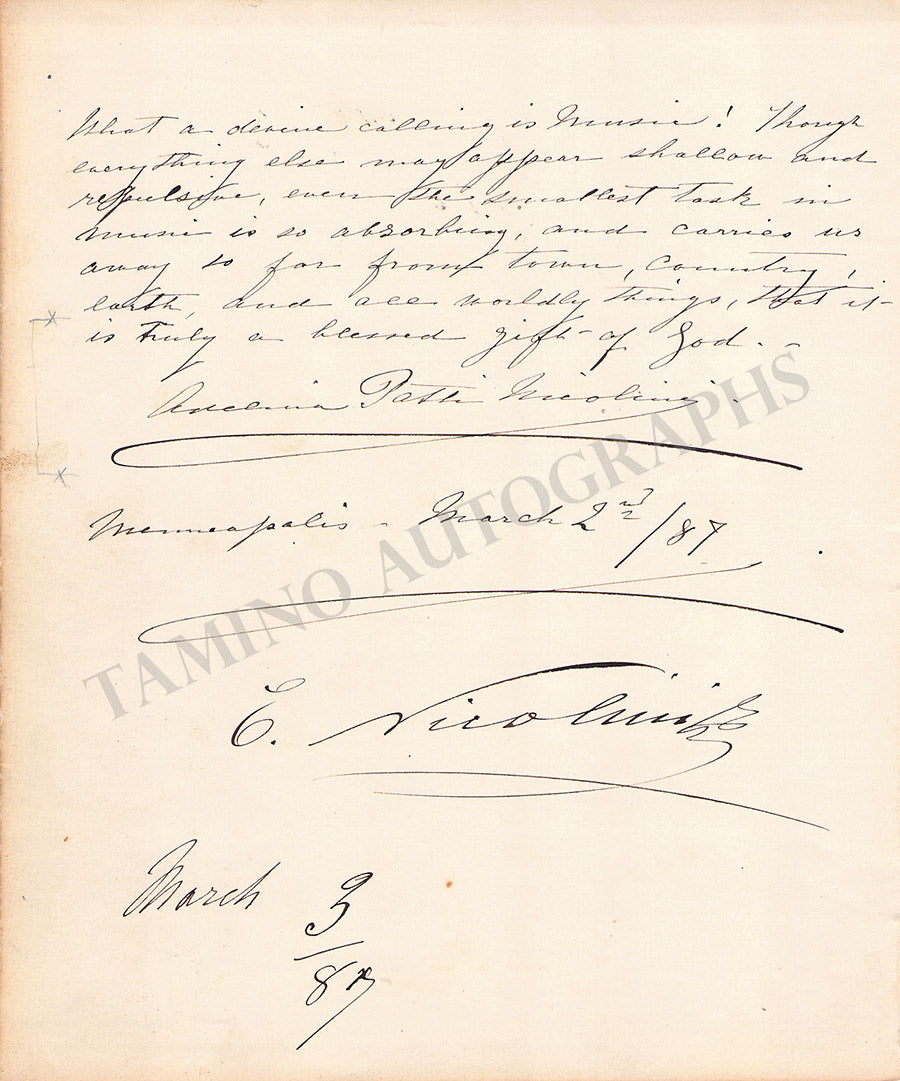 What a devine calling is Music! Though
everything else may appear shallow and
repulsive, even the smallest task in
music is so absorbing, and carries us
away so far from town, country,
earth, and all worldly things, that it
is truly a blessed gift of God. -
Adelina Patti Nicolini -
Menneapolis - March 2nd/87
TAMINO AUTOGRAPHS
E. Nicolini
March 3/87